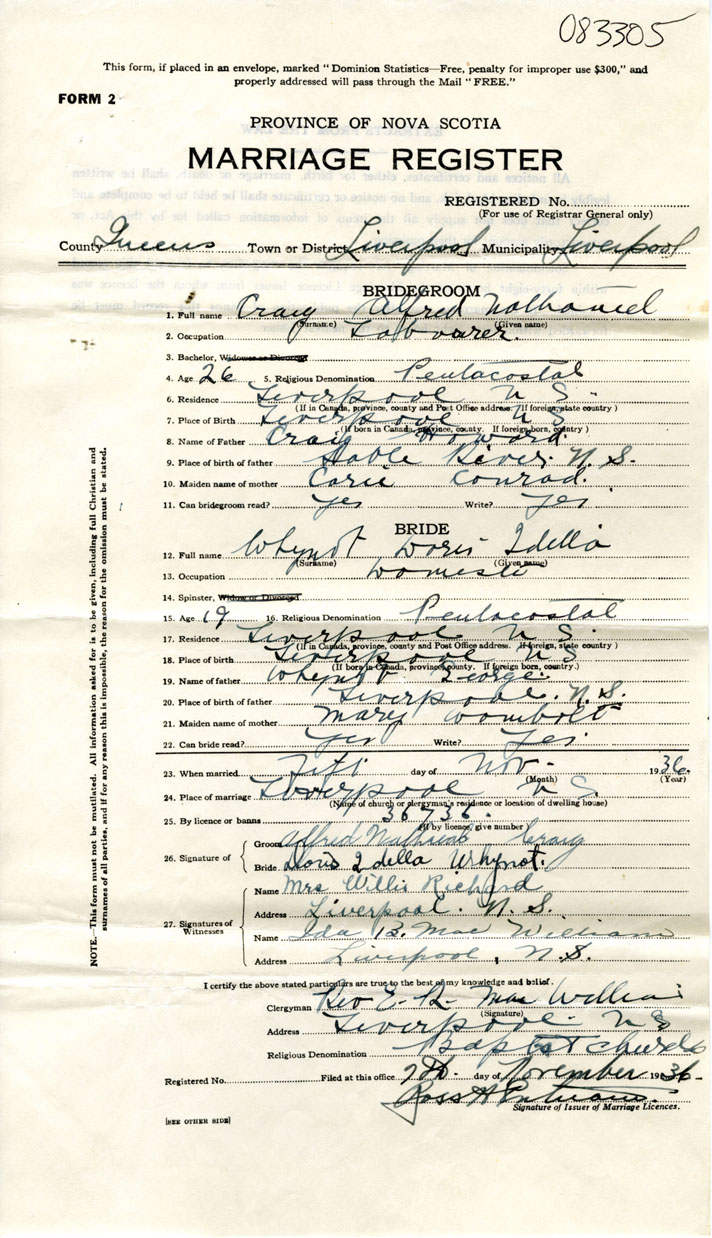 083305
This form, if placed in an envelope, marked "Dominion Statistics—Free, penalty for improper use $300," and
properly addressed will pass through the Mail "FREE."
FORM 2
PROVINCE OF NOVA SCOTIA
MARRIAGE REGISTER
REGISTERED No.
(For use of Registrar General only)
County Queens Town or District Liverpool Municipality Liverpool
BRIDEGROOM
1. Full name Craig Alfred Nathaniel
(Surname) (Given name)
2. Occupation Labourer.
3. Bachelor, Widower or Divorced
4. Age 26 5. Religious Denomination Pentacostal
6. Residence Liverpool N S.
(If in Canada, province, county and Post Office address. If foreign, state country)
7. Place of Birth Liverpool N S
(If born in Canada, province, county. If foreign born, country)
8. Name of Father Craig Howard.
9. Place of birth of father Sable River. N. S.
10. Maiden name of mother Carie Conrad.
11. Can bridegroom read? Yes Write? Yes
BRIDE
12. Full name Whynot Doris Idella
(Surname) (Given name)
13. Occupation Domestic
14. Spinster, Widow or Divorced
15. Age 19 16. Religious Denomination Pentacostal
17. Residence Liverpool N S.
(If in Canada, province, county and Post Office address. If foreign, state country)
18. Place of birth Liverpool N S
(If born in Canada, province, county. If foreign born, country.)
19. Name of father Whynot George.
20. Place of birth of father Liverpool. N. S.
21. Maiden name of mother Mary Wombolt
22. Can bride read? Yes Write? Yes
23. When married day of Nov. 1936.
(Month) (Year)
24. Place of marriage Liverpool N S.
(Name of church or clergyman's residence or location of dwelling house)
25. By licence or banns 36736.
(If by licence, give number)
26. Signature of
Groom Alfred Craig
Bride Doris Idella Whynot.
27. Signatures of Witnesses
Name Mrs Willis Richard
Address Liverpool. N. S.
Name Ida B. Mac William
Address Liverpool, N.S.
I certify the above stated particulars are true to the best of my knowledge and belief.
Clergyman Rev E. R. Mac William
(Signature)
Address Liverpool N S
Religious Denomination Baptist Church
Registered No. Filed at this office 7th. day of November 1936.
Ross H
Signature of Issuer of Marriage Licences.
[SEE OTHER SIDE]
NOTE.—This form must not be mutilated. All information asked for is to be given, including full Christian and
surnames of all parties, and if for any reason this is impossible, the reason for the omission must be stated.